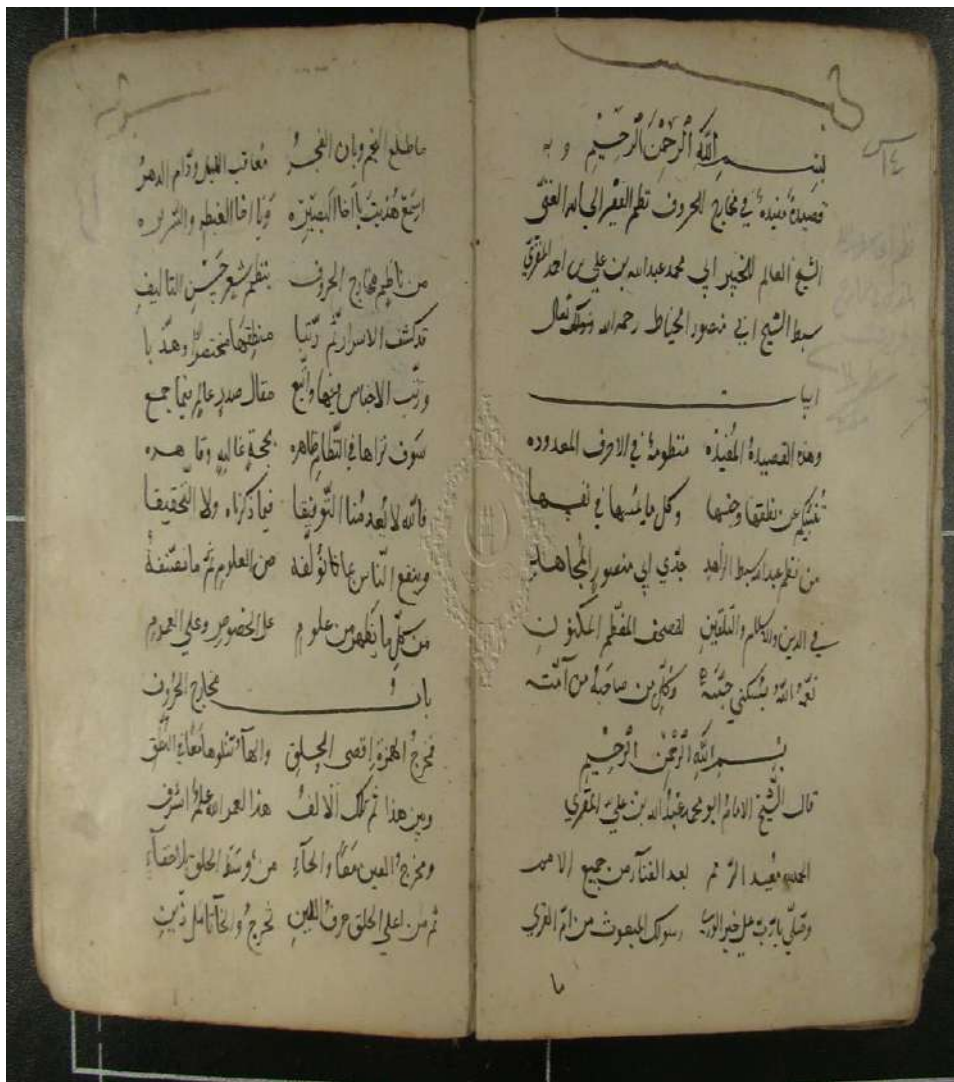 بِسْمِ اللَّهِ الرَّحْمٰنِ الرَّحِيْمِ وبه
قصيدة مفيدة في مخارج الحروف نظم الفقير الى الله الغني
الشيخ العالم ابي محمد عبدالله بن علي بن احمد المقري
سبط الشيخ ابي منصور الخياط رحمه الله تعالى
ابيات
وهذه القصيدة المفيده منظومة في الاحرف المعدوده
وكل ما في نفسها
من نظم عبدالله سبط الزاهد جدّي ابي منصور المجاهد
في الدين والاسلام والتلقين للمصحف المعظم المكنون
الله يسكني جنته وكل من صاحبه من آمته
بِسْمِ اللَّهِ الرَّحْمٰنِ الرَّحِيْمِ
قال الشيخ الامام ابو محمد عبدالله بن علي المقري
الحمد لله معيد الرمم بعد الفنآء من جميع الامم
وصلّي يا ربّ على خير الورى رسولك المبعوث من امّ القرى
ما
ما طلع النجم وبان الفجر معاقب الليل ودام الدهر
اسمع هُديت يا اخا البصيره ويا اخا الفطنه والسريره
من ناظم مخارج الحروف بنظم شعر حسن التاليف
قد كشف الاسرار ثم رتبا منطقها مختصرا وهذّبا
ورتّب الاجناس فيها واتبع مقال صدر عالم فيما جمع
سوف تراها في النظام ظاهره بحجة غالبه وقاهره
فالله لا يُعدمنا التوفيقا فيما ذكرناه ولا التحقيقا
وينفع النّاس بما نؤلفه من العلوم ثم ما نصنفه
من كلّ ما يظهر من علوم على الخصوص وعلى العموم
باب مخارج الحروف
فمخرج الهمزة اقصى الحلق والهآء تتلوها معًا في النطق
وبين هذا ثم تلك الالف هذا لعمر الله علم اشرف
ومخرج العين معًا والحآء من وسط الحلق
ثم من اعلى الحلق حرف الغين مخرج والخا تامل ذين